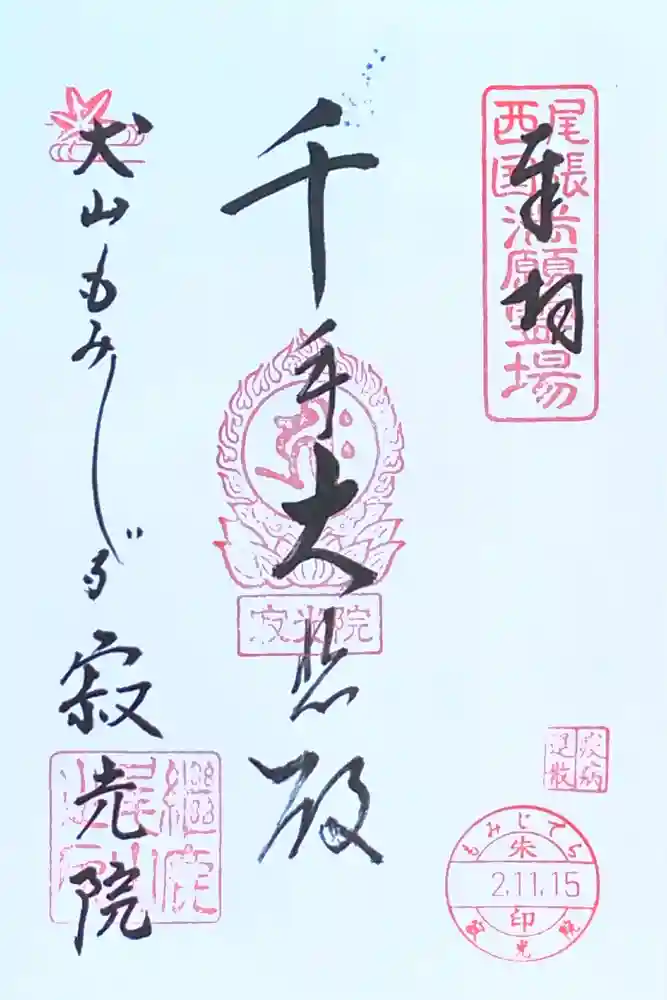 奉拝
尾張
西国
満願霊場
千手大悲殿
寂光院
犬山もみじでら
寂光院
継鹿
尾山
疫病
退散
もみじでら
朱
2.11.15
印
寂光院